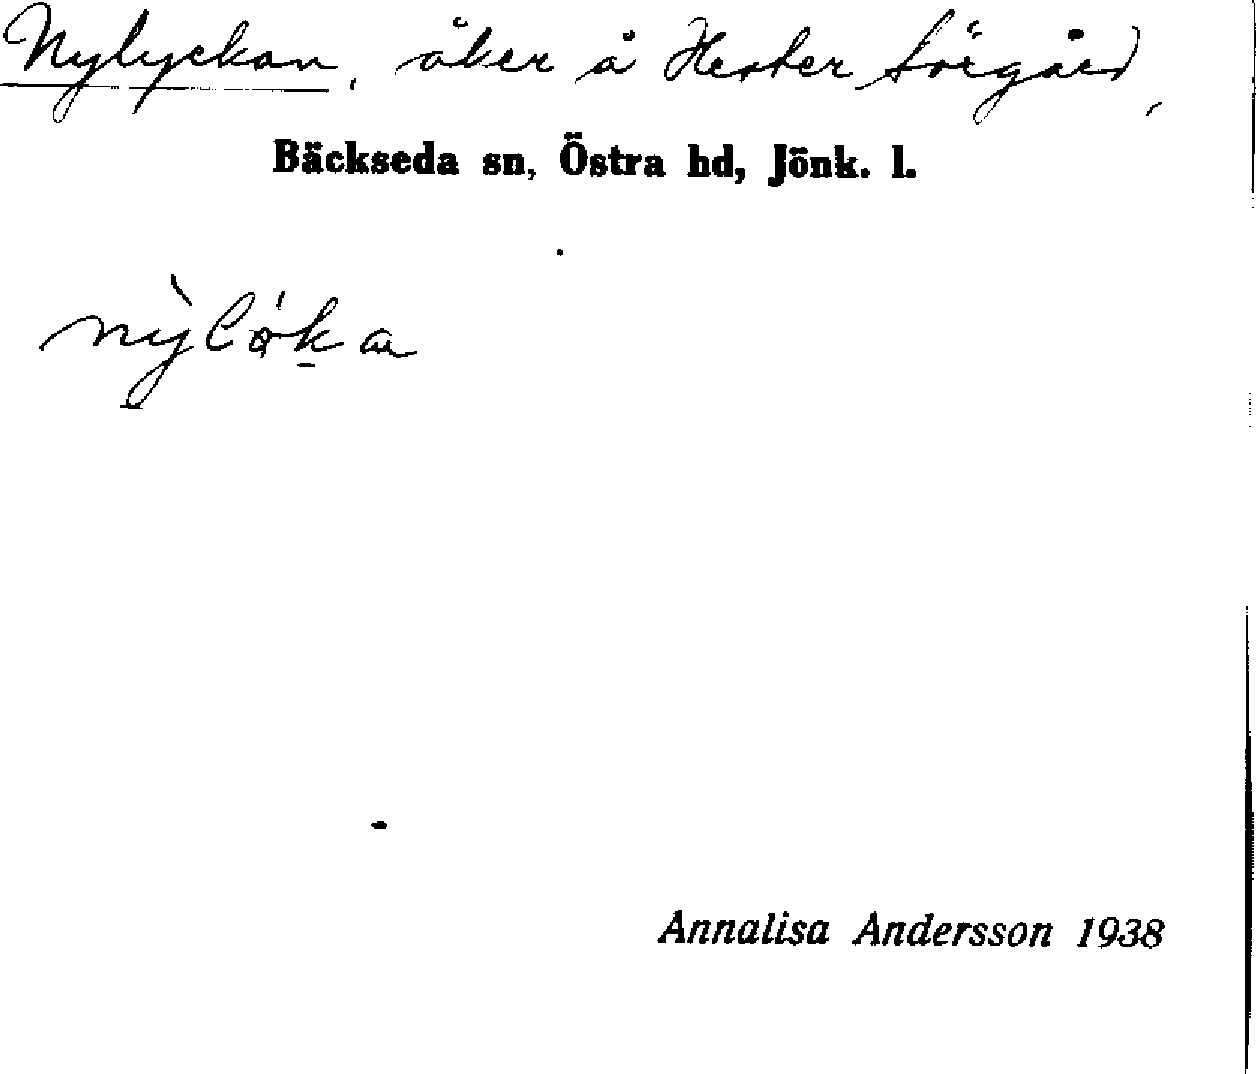 Nylyckan, åker å Hester Sörgård,
Bäckseda sn, Östra hd, Jönk. l.
Annalisa Andersson 1938